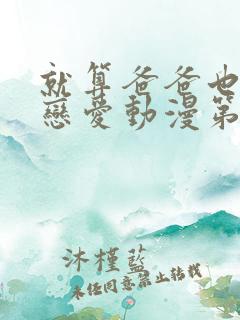 就算爸爸也
戀愛動漫第
沐槿藍
未經同意禁止轉載